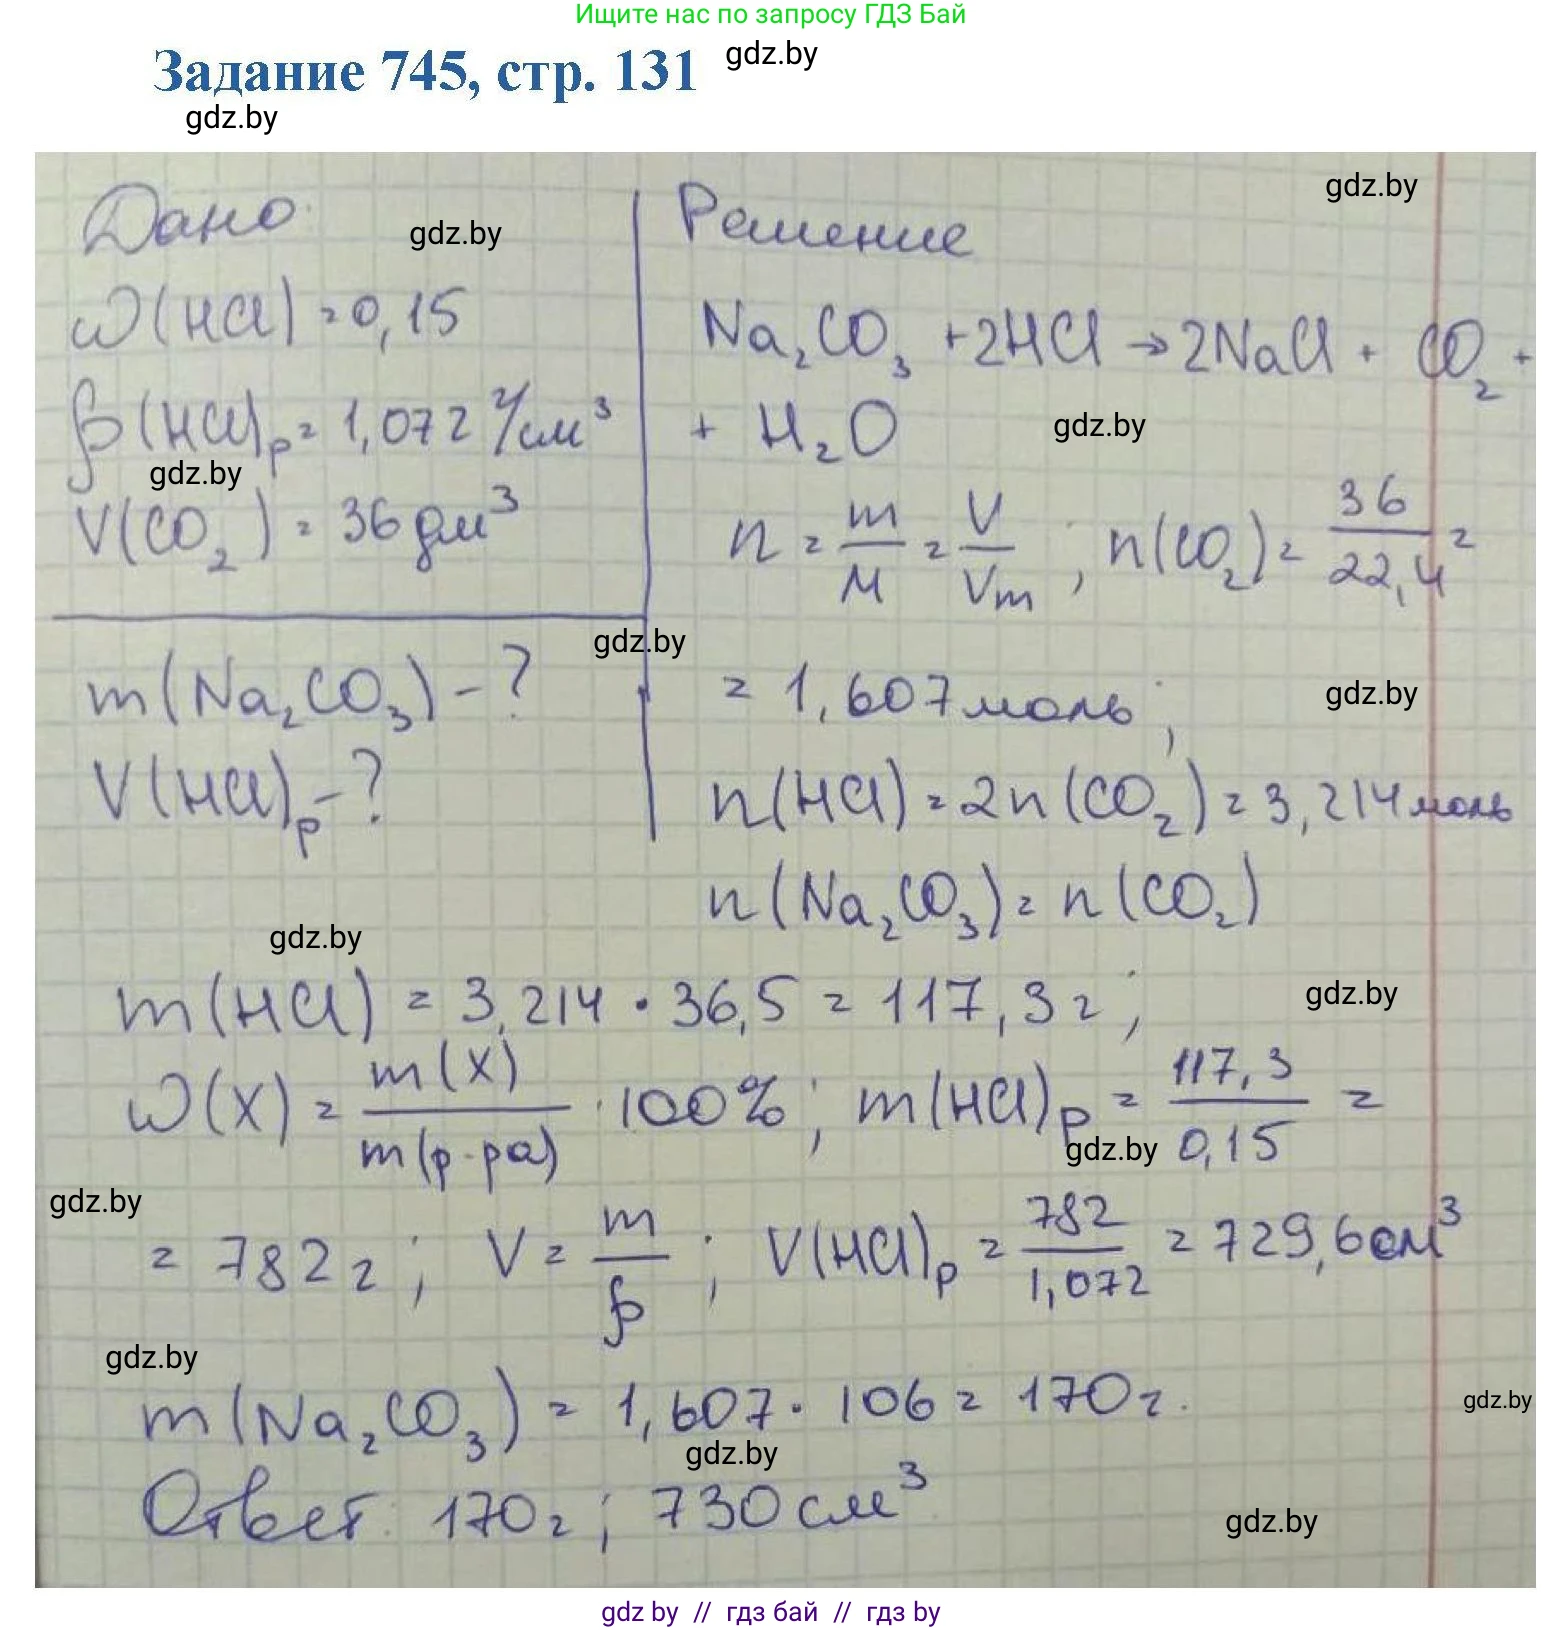 Ищите нас по запросу ГДЗ Бай
Задание 745, стр. 131 gdz.by
gdz.by
Дано: gdz.by
ω(HCl) = 0,15
ρ(HCl)р = 1,072 г/см³
gdz.by
V(CO₂) = 36 дм³
gdz.by
m(Na₂CO₃) - ?
V(HCl)р - ?
Решение gdz.by
Na₂CO₃ + 2HCl → 2NaCl + CO₂ +
+ H₂O gdz.by
n = m/M = V/Vm ; n(CO₂) = 36/22,4 =
= 1,607 моль ; gdz.by
n(HCl) = 2n(CO₂) = 3,214 моль
n(Na₂CO₃) = n(CO₂)
gdz.by
m(HCl) = 3,214 · 36,5 = 117,3 г ; gdz.by
ω(X) = m(X)/m(р-ра) · 100% ; m(HCl)р = 117,3/0,15 =
gdz.by
gdz.by
= 782 г ; V = m/ρ ; V(HCl)р = 782/1,072 = 729,6 см³
gdz.by
m(Na₂CO₃) = 1,607 · 106 = 170 г. gdz.by
gdz.by
Ответ: 170 г ; 730 см³
gdz.by
gdz by // гдз бай // гдз by